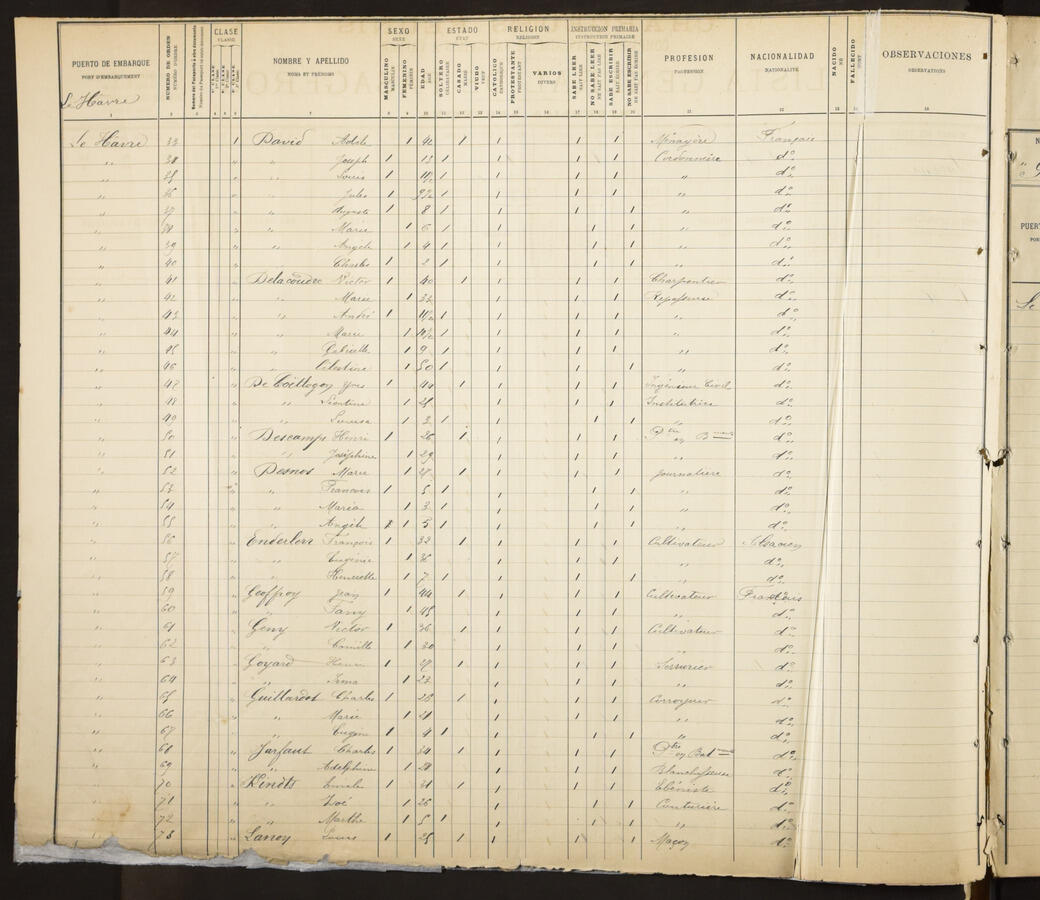 PUERTO DE EMBARQUE
PORT D'EMBARQUEMENT
NÚMERO DE ORDEN
NUMÉRO D'ORDRE
CLASE
CLASSE
NOMBRE Y APELLIDO
NOMS ET PRÉNOMS
SEXO
SEXE
MASCULINO
FEMENINO
EDAD
ESTADO
ÉTAT
SOLTERO
CASADO
VIUDO
RELIGION
RELIGION
CATÓLICO
PROTESTANTE
VARIOS
DIVERS
INSTRUCCION PRIMARIA
INSTRUCTION PRIMAIRE
SABE LEER
NO SABE LEER
SABE ESCRIBIR
NO SABE ESCRIBIR
PROFESION
PROFESSION
NACIONALIDAD
NATIONALITÉ
NACIDO
FALLECIDO
OBSERVACIONES
OBSERVATIONS
Le Havre
Le Havre 33 1 David Adèle 1 42 1 1 1 1 Ménagère Français
" 34 " " Joseph 1 13 1 1 1 1 Cordonnier do
" 35 " " Louis 1 1 1 1 1 " do
" 36 " " Jules 1 1 1 1 1 " do
" 37 " " Auguste 1 8 1 1 1 1 " do
" 38 " " Marie 1 6 1 1 1 1 " do
" 39 " " Angèle 1 4 1 1 1 1 " do
" 40 " " Charles 1 2 1 1 1 1 " do
" 41 " Delacoudre Victor 1 40 1 1 1 1 Charpentier do
" 42 " " Marie 1 32 1 1 1 Repasseuse do
" 43 " " André 1 1 1 1 1 " do
" 44 " " Marie 1 1 1 1 1 " do
" 45 " " Gabrielle 1 9 1 1 1 1 " do
" 46 " " Célestine 1 50 1 1 1 1 do
" 47 " De Coëtlogon Yves 1 44 1 1 1 1 Ingénieur Civil do
" 48 " " Léontine 1 28 1 1 1 Institutrice do
" 49 " " 1 3 1 1 1 1 " do
" 50 " Descamps Henri 1 26 1 1 1 1 do
" 51 " " Joséphine 1 29 1 1 1 " do
" 52 " Desnos Marie 1 28 1 1 1 1 Journalière do
" 53 " " François 1 5 1 1 1 1 " do
" 54 " " Maria 1 3 1 1 1 1 " do
" 55 " " Angèle 1 5 1 1 1 1 " do
" 56 " Enderlen François 1 32 1 1 1 1 Cultivateur Alsacien
" 57 " " Eugénie 1 36 1 1 1 " do
" 58 " " Henriette 1 7 1 1 1 1 " do
" 59 " Geoffroy Jean 1 44 1 1 1 1 Cultivateur Français
" 60 " " Fany 1 45 1 1 1 " do
" 61 " Geny Victor 1 36 1 1 1 1 Cultivateur do
" 62 " " Camille 1 30 1 1 1 " do
" 63 " Goyard Henri 1 27 1 1 1 1 Serrurier do
" 64 " " Irma 1 23 1 1 1 " do
" 65 " Guillardot Charles 1 28 1 1 1 1 Corroyeur do
" 66 " " Marie 1 21 1 1 1 " do
" 67 " " Eugène 1 4 1 1 1 1 " do
" 68 " Jarfaut Charles 1 34 1 1 1 1 do
" 69 " " Adelphine 1 28 1 1 1 Blanchisseuse do
" 70 " Kindts 1 31 1 1 1 1 Ebéniste do
" 71 " " Zoé 1 26 1 1 1 Couturière do
" 72 " " Marthe 1 5 1 1 1 1 " do
" 73 " Lanoy Louis 1 25 1 1 1 1 Maçon do